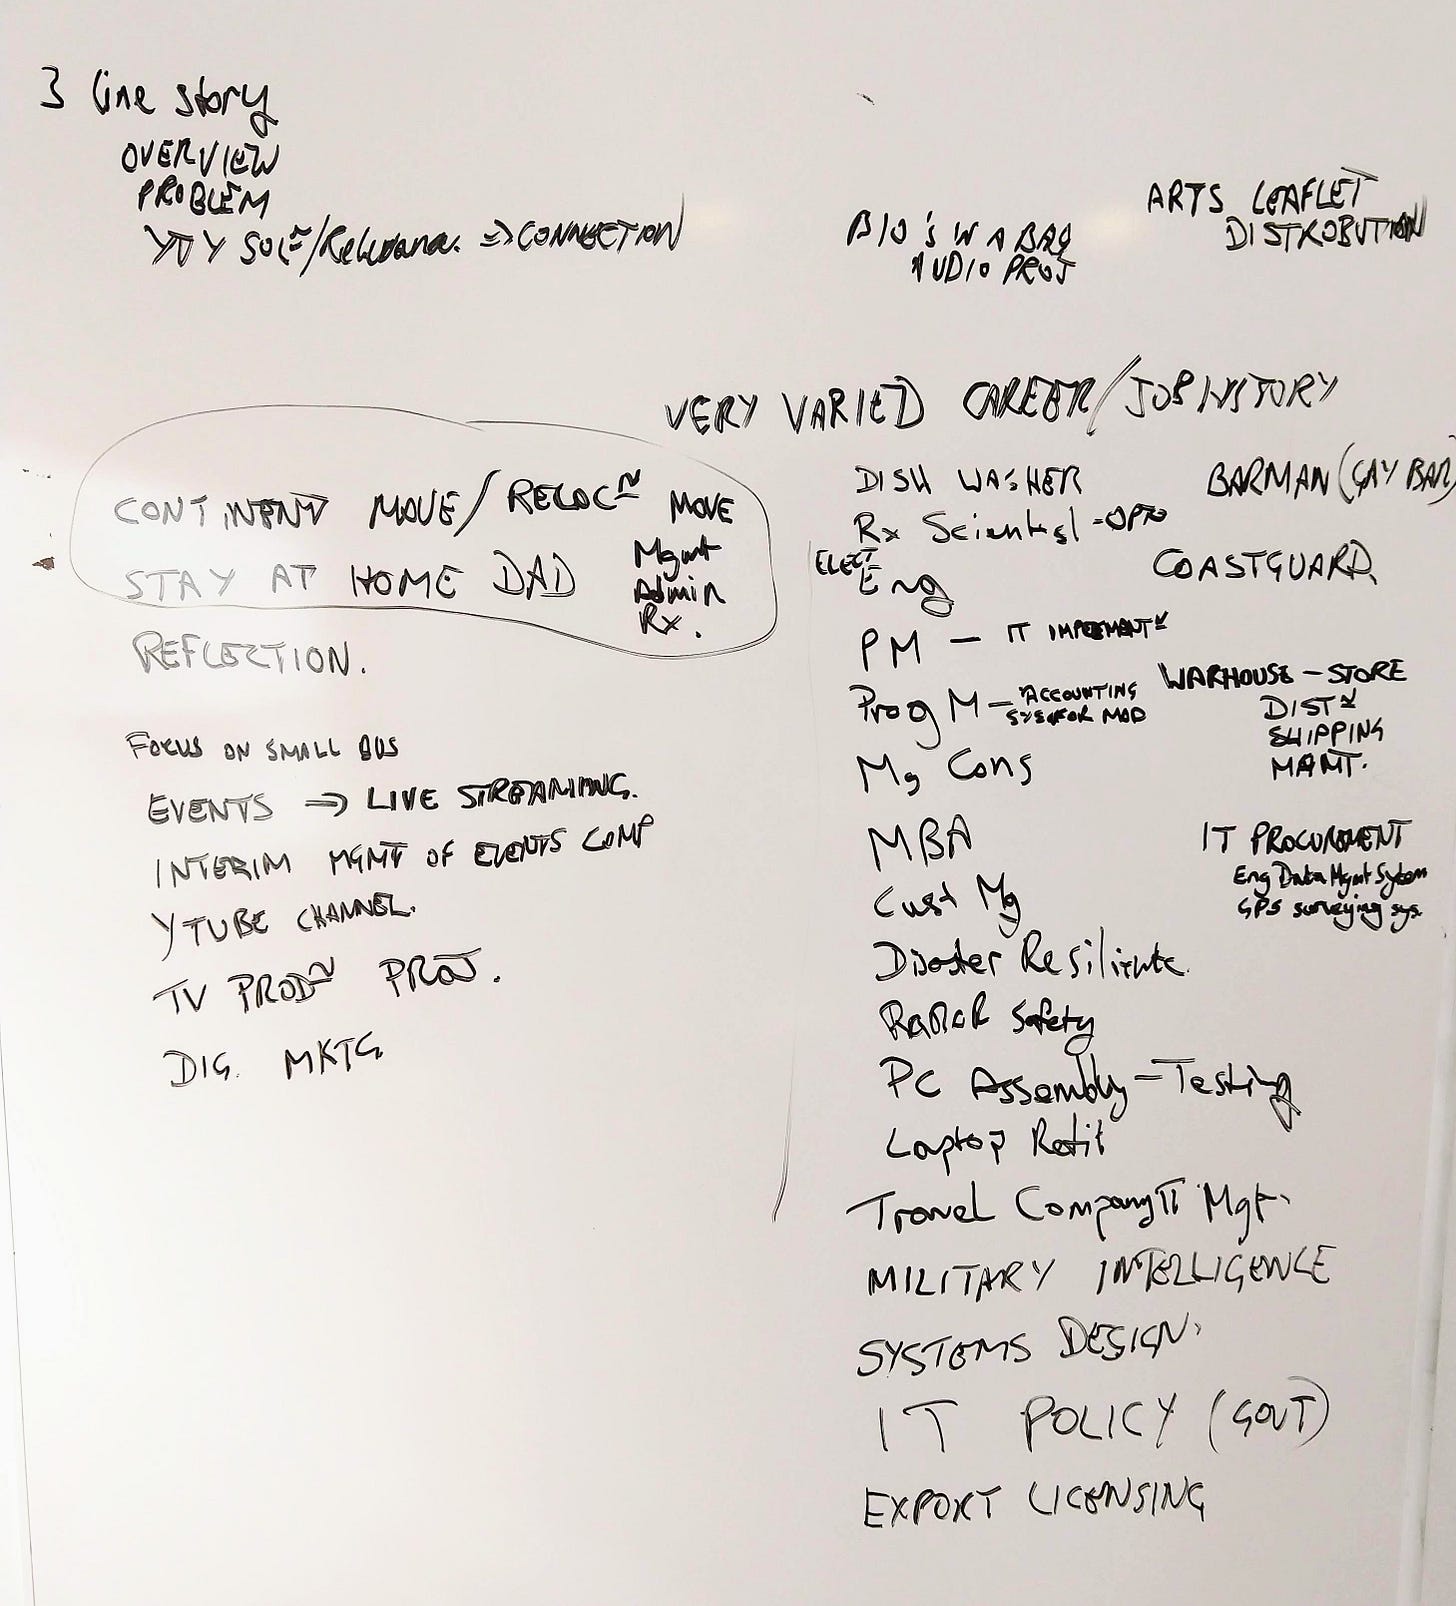 3 line story
OVERVIEW
PROBLEM
SOL~/Relevance. => CONNECTION
ARTS LEAFLET
DISTROBUTION
BIO'S W A BAG
AUDIO PROJ
VERY VARIED CAREER/JOB HISTORY
CONTINENT MOVE/RELOC~ MOVE
Mgmt
STAY AT HOME DAD
Admin
Rx.
REFLECTION.
FOCUS ON SMALL BUS
EVENTS => LIVE STREAMING.
INTERIM MGMT OF EVENTS COMP
YTUBE CHANNEL.
TV PROD~ PROJ.
DIG. MKTG
DISH WASHER
BARMAN (GAY BAR)
Rx Scientist - OPTO
ELECT Eng
COASTGUARD
PM - IT IMPLEMENT~
WARHOUSE - STORE
DIST~
SHIPPING
MAMT.
Prog M - ACCOUNTING
SYS FOR MOD
Mg Cons
MBA
IT PROCUREMENT
Eng Data Mgmt System
GPS surveying sys.
Cust Mg
Disaster Resilience
RADAR Safety
PC Assembly - Testing
Laptop Refit
Travel Company IT Mgt.
MILITARY INTELLIGENCE
SYSTEMS DESIGN.
IT POLICY (GOVT)
EXPORT LICENSING